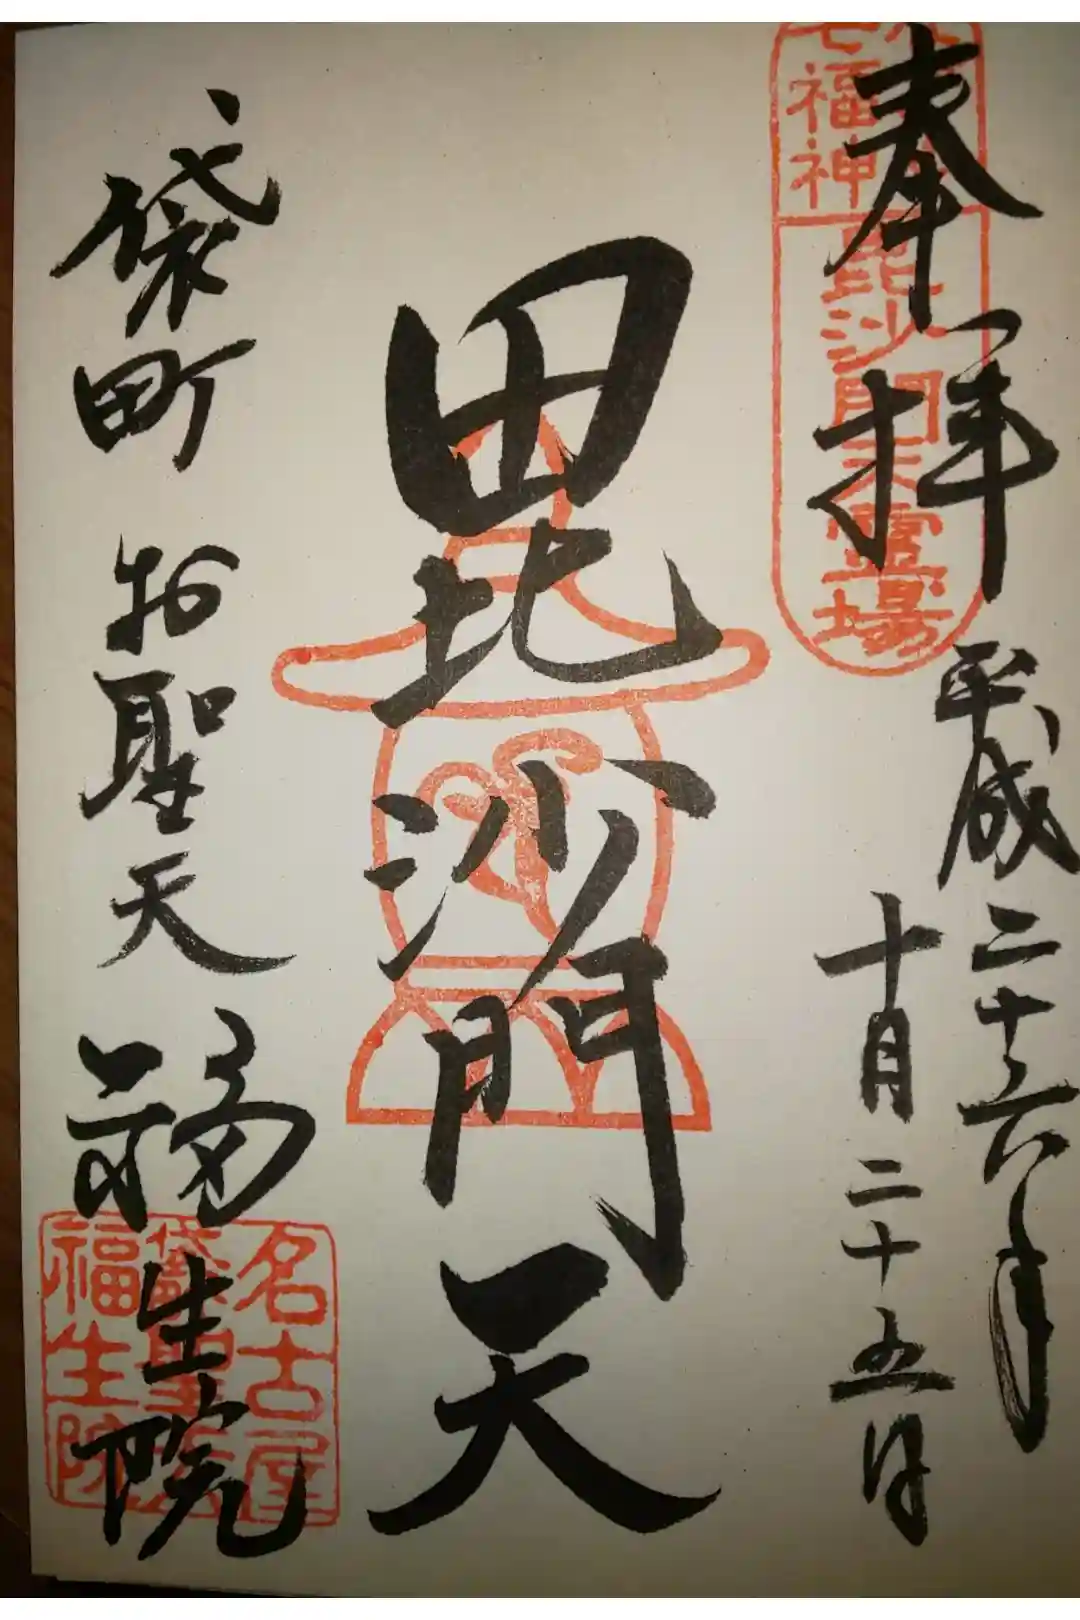 奉拝
平成二十六年
十月二十五日
七福神
毘沙門天霊場
毘沙門天
袋町
お聖天
福生院
名古屋
袋聖天
福生院